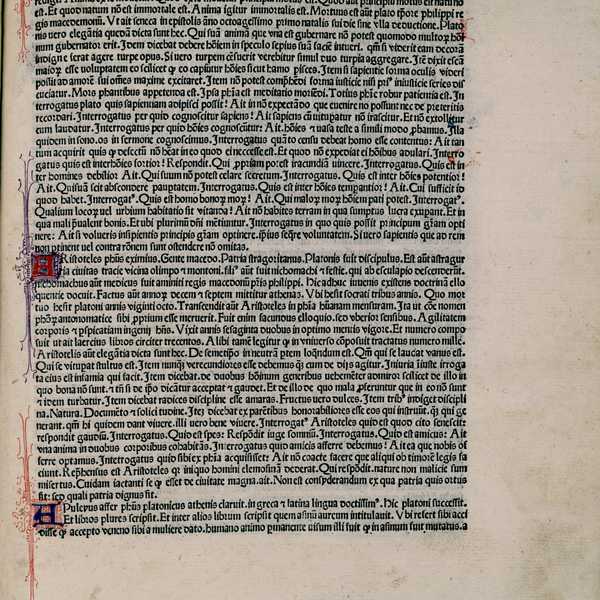 Et quod natum nō est immortale est. Anima igitur immortalis est. Mortuus est aūt plato tp̄ore philippi re
gis macedonum. Ut ait seneca in epistolis āno octogessimo primo natalis sui die sine vlla deductione. Plato
nis vero elegātia quedā dicta sunt hec. Qui suā animā que vna est gubernare nō potest quomodo multoꝝ hoīn
num gubernator erit. Idem dicebat debere hoīem in speculo sepius suā faciē intueri. qm̄ si viderit eam decorā
indigne ferat agere turpe opus. Si vero turpem cēsuerit verebitur simul duo turpia aggregare. Idē dixit escā
maioꝝ esse voluptatem eo scilicet ꝙ eo capiūtur hoīes sicut hamo pisces. Item si sapientie forma oculis videri
possit ad amorē sui oēs maxime excitaret. Item nō potest cōmp̄hedi forma iusticie nisi pri⁹ iniusticie series dis
cuciatur. Mors phantibus appetenda est. Ipsa ph̄ia est meditatio morsēdi. Totius ph̄ie robur patientia est. In
terrogatus plato quis sapientiam adipisci possit? Ait in nō expectādo que euenire no possunt nec de preteritis
recordari. Interrogatus per quid cognoscitur sapiens? Ait sapiens cū vituperatur nō irascitur. Et nō extollitur
cum laudatur. Interrogatus per quid hoīes cognoscūtur? Ait. hoīes & vasa teste a simili modo ꝓbamus. Illa
quidem in sono. os in sermone cognoscimus. Interrogatus quāto censu debeat homo esse contentus? Ait tan
tum acquirit quis ꝙ desicēti nō hēat in eo quod einecesse est. Et quod nō expediat ei hoībus adulari. Interro
gatus quis est inter hoīes fortior? Respondit. Qui ꝓpriam potest iracundiā vincere. Interrogatus. Quis est in
ter homines debilior? Ait. Qui suum nō potest celare secretum. Interrogatus. Quis est inter hoīes potentior?
Ait. Qui suam scit abscondere paupertatem. Interrogatus. Quis est inter hoīes temperantior? Ait. Cui sufficit id
quod habet. Interrogat⁹. Quis est homo bonoꝝ moꝝ? Ait. Qui maloꝝ moꝝ hoīem pati potest. Interrogat⁹.
Qualium locoꝝ vel urbium habitatio sit vitanda? Ait nō habites terram in qua sumptus lucra exupant. Et in
qua mali p̄ualent bonis. Et ubi plurimū dn̄i mētiuntur. Interrogatus in quo quis possit principum grām opti
nere? Ait si volueris insipientis principis grām optinere. ip̄ius seq̄re voluntatem. Si vero sapientis que ad rem
non ptinent vel contra rōnem sunt ostendere nō omitas.
ARistoteles ph̄us eximius. Gente macedo. Patria stragoritanus. Platonis fuit discipulus. Est aūt astragur
ia ciuitas tracie vicina olimpo & montoni. fili⁹ aūt fuit nichomachi & festie. qui ab esculapio descenderūt.
nichomachus aūt medicus fuit aminiti regis macedonū p̄ris philippi. Hic adhuc iuuenis existens doctrinā elo
quentie docuit. Factus aūt annoꝝ decem & septem mittitur athenas. Ubi hesit socrati tribus annis. Quo mor
tuo hesit platoni annis viginti octo. Transcendit aūt Aristoteles in ph̄ia humānam mensuram. Ita ut cōe nomen
ph̄oꝝ antonomatice sibi ꝓprium esse meruerit. Fuit enim facundus eloquio. sed vberior sensibus. Agilitatem
corporis & pspicatiam ingenij hn̄s. Vixit annis sexaginta duobus in optimo mentis vigore. Et numero compo
suit ut ait laercius libros circiter trecentos. Alibi tamē legitur ꝙ in vniuerso cōposuit tractatus numero mille.
Aristotelis aūt elegātia dicta sunt hec. De semetip̄o in neutrā ptem loq̄ndum est. Qm̄ qui se laudat vanus est.
Qui se vitupat stultus est. Item nunq̄ verecundiores esse debemus q̄ cum de dijs agitur. Iniuria iuste irroga
ta eius est infamia qui facit. Item dicebat. de duobus hoīnum generibus vehemēter admiror scilicet de illo in
quo bona nō sunt. & tn̄ si de ip̄o dicātur acceptat & gaudet. Et de illo de quo mala ꝓferuntur que in eo nō sunt
& idem turbatur. Item dicebat radices discipline esse amaras. Fructus vero dulces. Item trib⁹ indiget discipli
na. Natura. Documēto & solici tudine. Itez dicebat ex parētibus honorabiliores esse eos qui instruūt. q̄ qui ge
nerant. qm̄ hi quidem dant viuere. illi vero bene viuere. Interrogat⁹ Aristoteles quid est quod cito senescit:
respondit gaudiū. Interrogatus. Quid est spes? Respōdit iuge somniū. Interrogatus. Quid est amicus? Ait
vna anima in duobus corporibus cohabitās. Interrogatus quo amicis afferre debemus? Ait ea que nobis of
ferre optamus. Interrogatus quid sibi ex ph̄ia acquisisset? Ait nō coacte facere que aliqui ob timorē legis fa
ciunt. Rep̄hensus est Aristoteles ꝙ iniquo homini elemosinā dederat. Qui respōdit. nature non malicie sum
misertus. Cuidam iactanti se ꝙ esset de ciuitate magna. ait. Non est consyderandum ex qua patria quis ortus
sit: sed quali patria dignus sit.
HApuleyus affer ph̄us platonicus athenis claruit. in greca & latina lingua doctissim⁹. Hic platoni successit.
Et libros plures scripsit. Et inter alios librum scripsit quem asinū aureum intitulauit. Ubi refert sibi acci
disse ꝙ accepto veneno sibi a muliere dato. humano animo ꝑmanente visum illi fuit ꝙ in asinum sūt mutatus. a